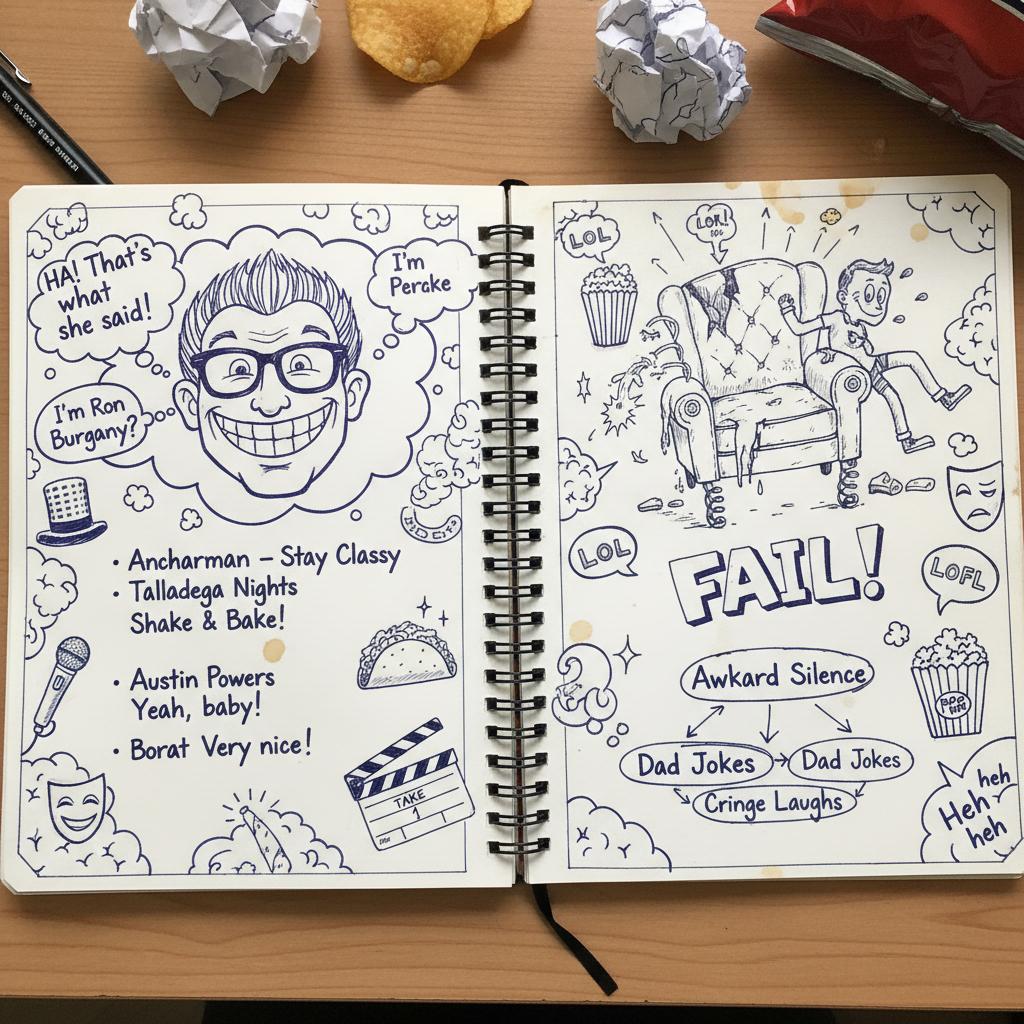 HA! That's
what
she said!
I'm
Percke
I'm Ron
Burgany?
• Ancharman – Stay Classy
• Talladega Nights
Shake & Bake!
• Austin Powers
Yeah, baby!
• Borat Very nice!
TAKE
1
LOL
LOL
FAIL!
LOFL
Awkard Silence
Dad Jokes
Dad Jokes
Cringe Laughs
heh
Heh
heh